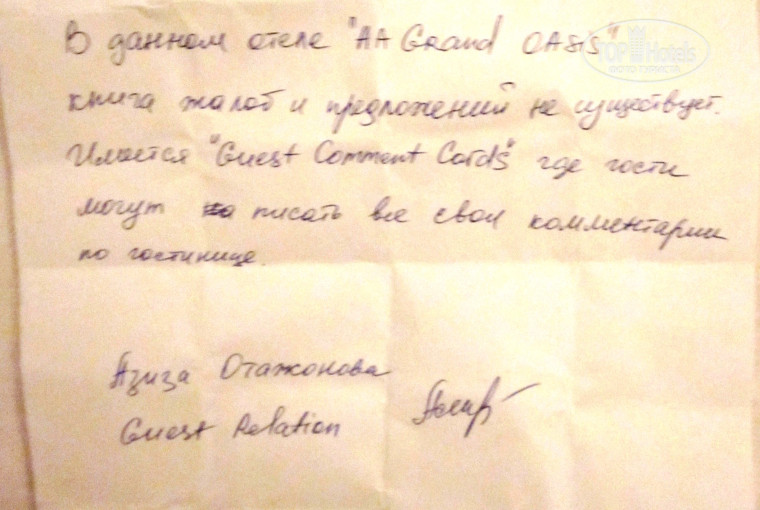 В данном отеле "AA Grand OAsis"
книга жалоб и предложений не существует.
Имеется "Guest Comment Cards" где гости
могут на писать все свои комментарии
по гостинице.
Азиза Отажонова
Guest Relation
TOP Hotels
ФОТО ТУРИСТА